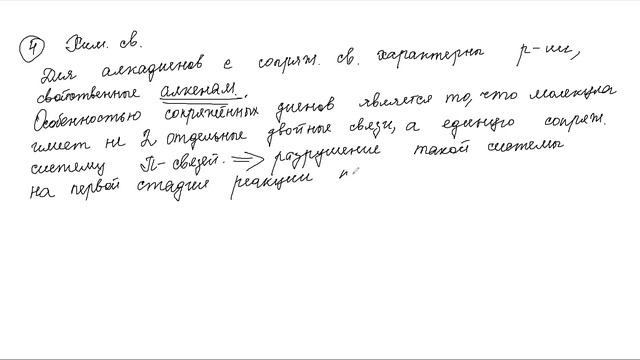 4 Хим. св.
Для алкадиенов с сопряж. св. характерны р-ии,
свойственные алкенам.
Особенностью сопряжённых диенов является то, что молекула
имеет не 2 отдельные двойные связи, а единую сопряж.
систему П-связей. => разрушение такой системы
на первой стадии реакции